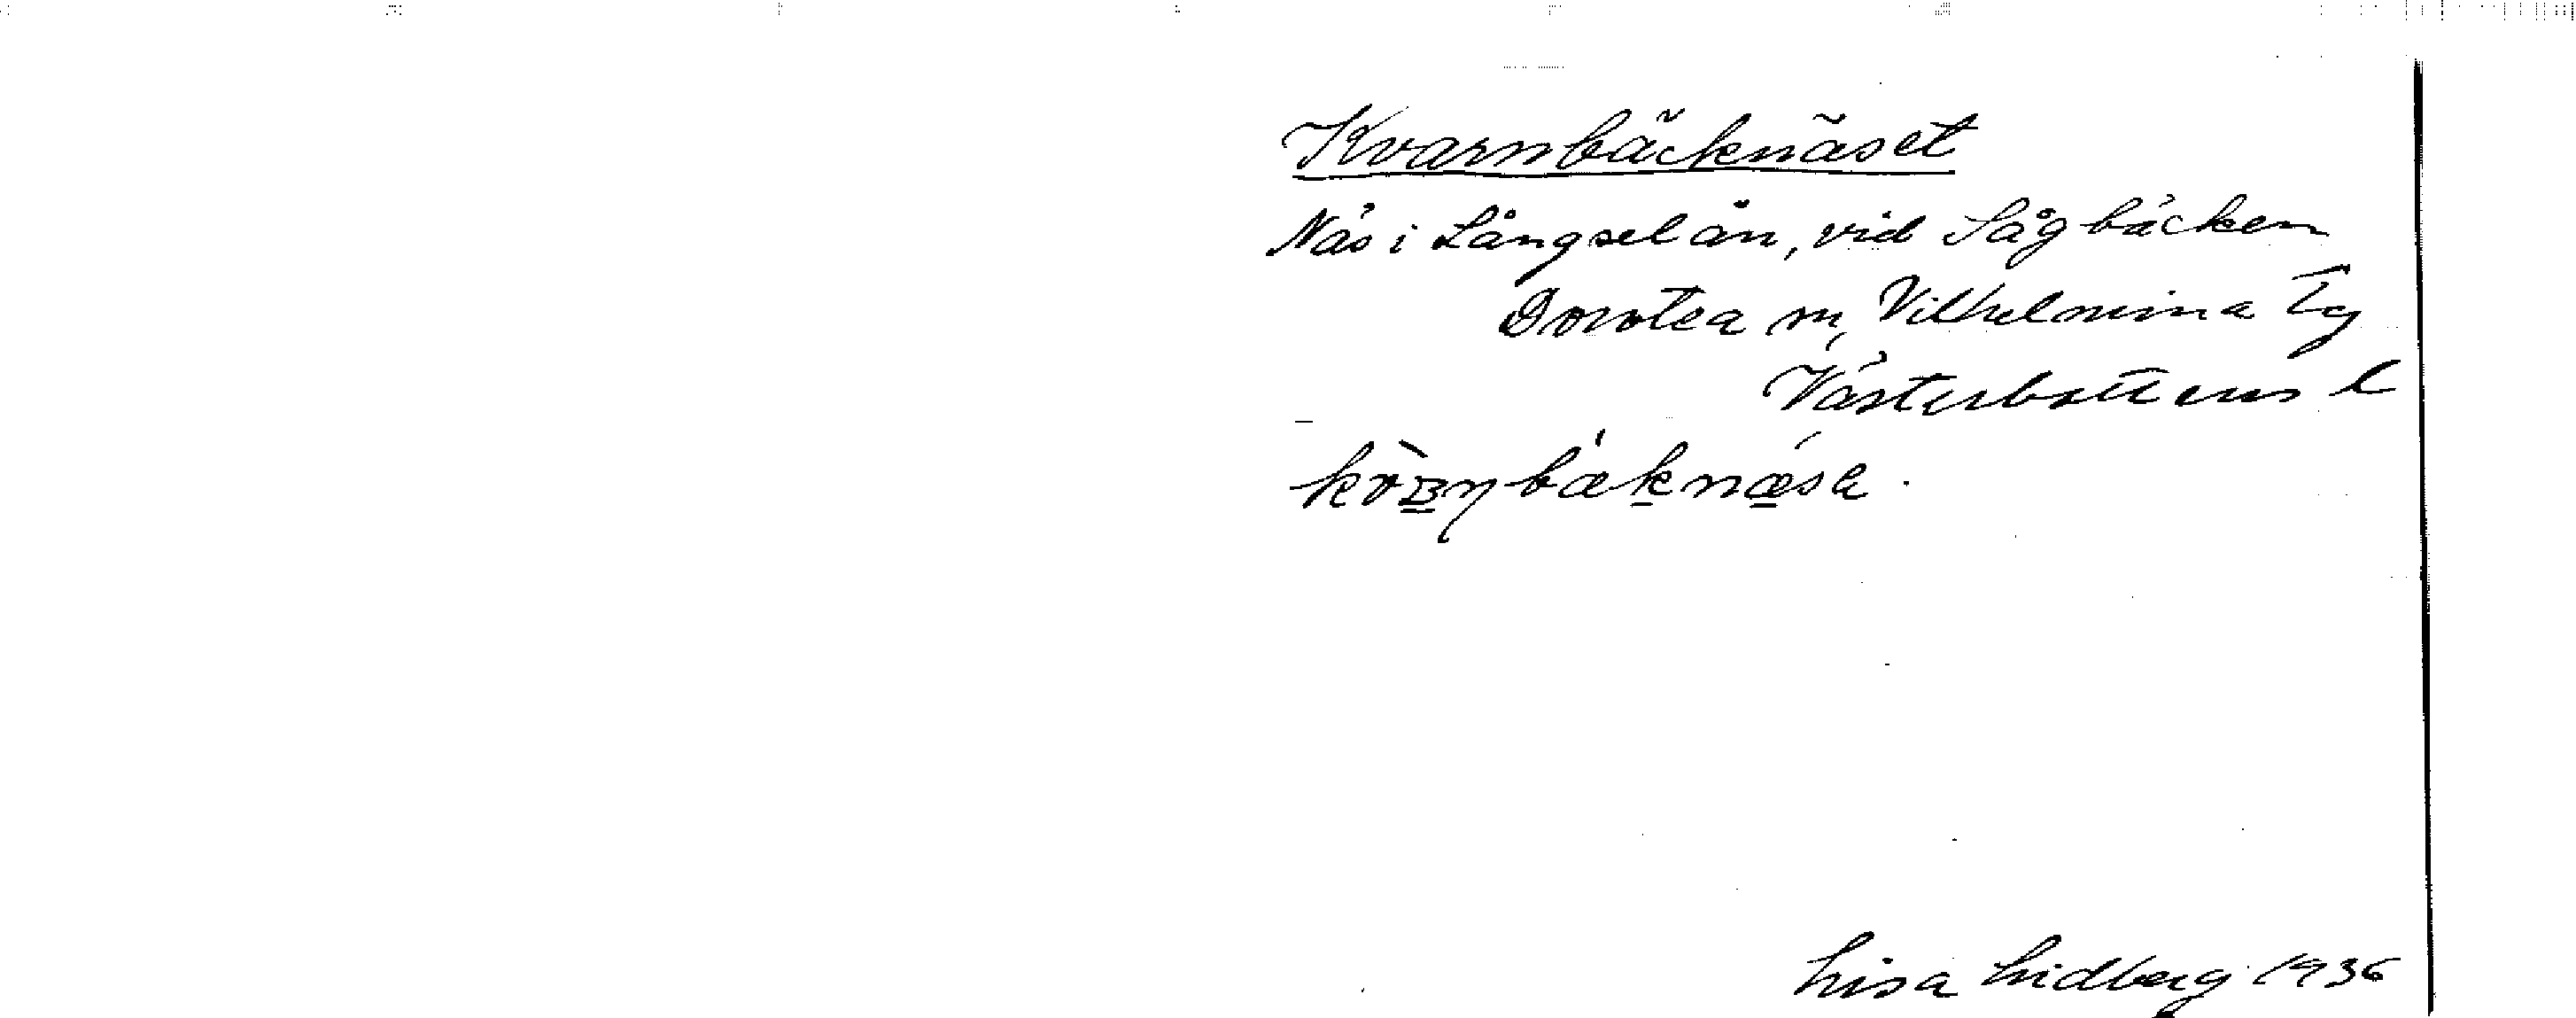 Kvarnbäcknäset
Näs i Långselån, vid Sågbäcken
Dorotea sn, Vilhelmina Tg
Västerbottens l
Lisa Lidberg 1936